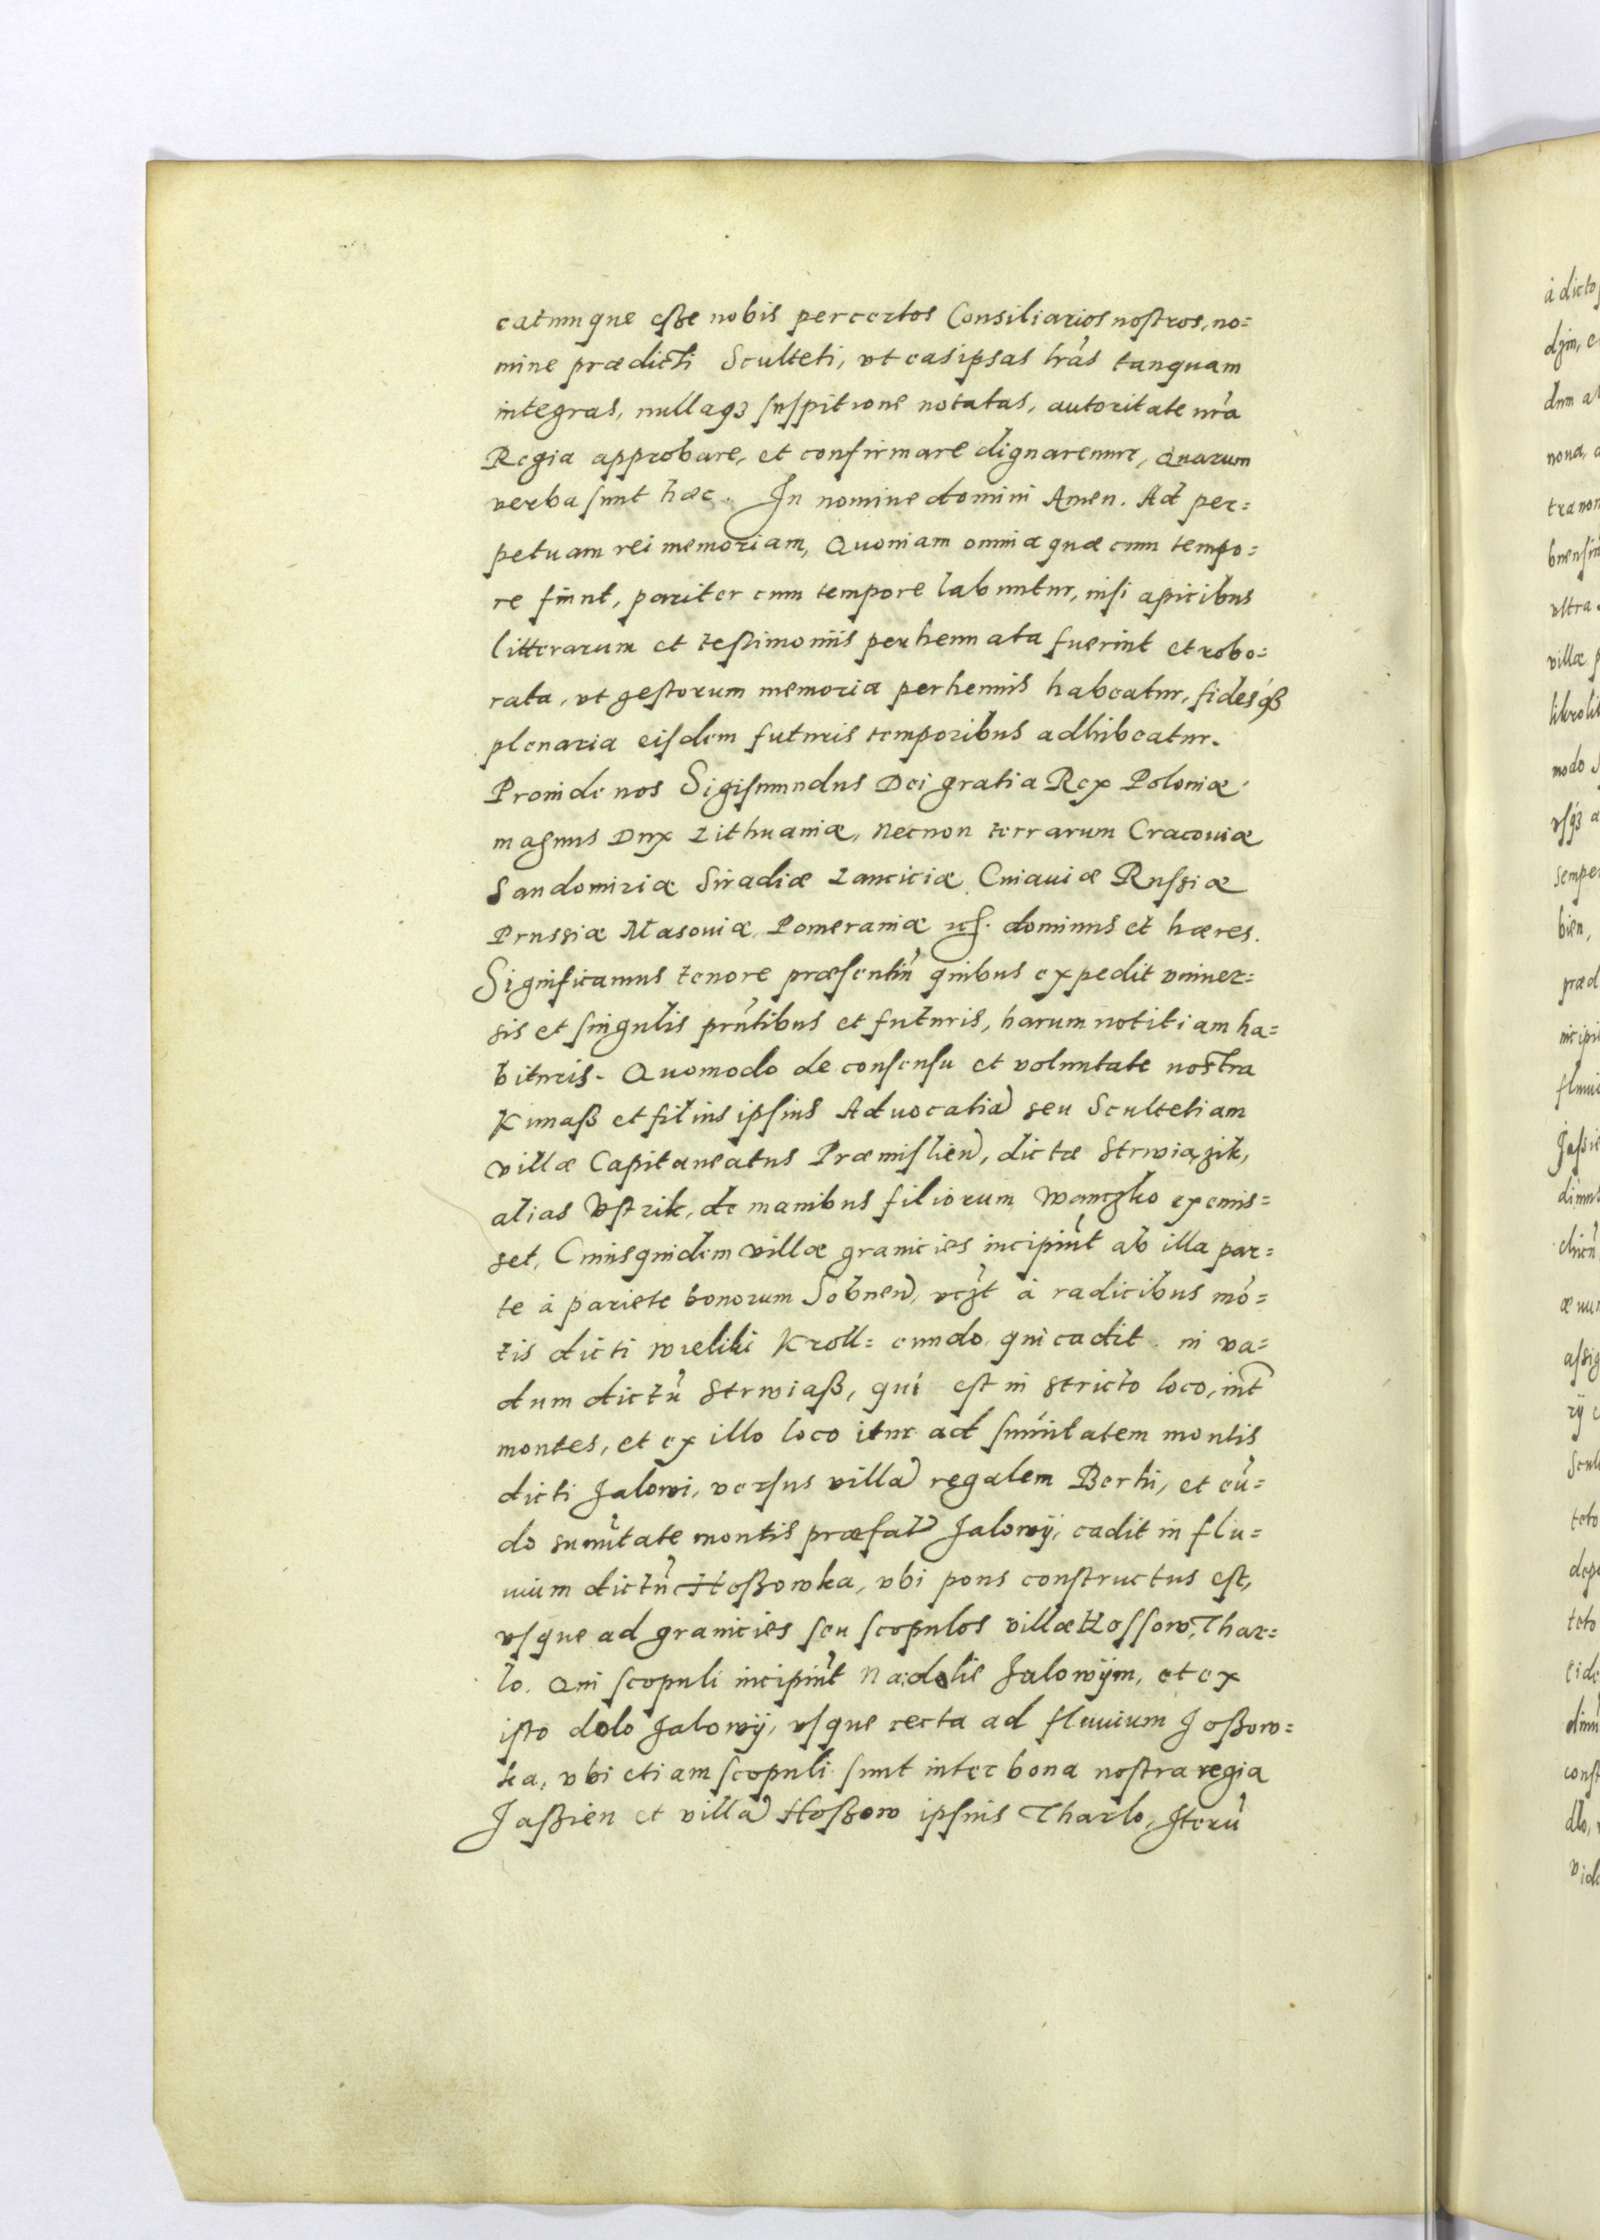 catumque eße nobis per certos Consiliarios nostros, no=
mine prædicti Sculteti, vt eas ipsas lrás tanquam
integras, nullaqз suspitione notatas, autoritate nr̃a
Regia approbare, et confirmare dignaremur, Quarum
verba sunt hæc. In nomine domini Amen. Ad per=
petuam rei memoriam, Quoniam omnia quæ cum tempo=
re fiunt, pariter cum tempore labuntur, nisi apicibus
litterarum et testimoniis perhennata fuerint et robo=
rata, vt gestorum memoria perhennis habeatur, fidesqз
plenaria eisdem futuris temporibus adhibeatur.
Proinde nos Sigismundus Dei gratia Rex Poloniæ
magnus Dux Lithuaniæ, Necnon terrarum Cracouiæ
Sandomiriæ Siradiæ Lanciciæ Cuiauiæ Russiæ
Prussiæ Masouiæ Pomeraniæ etc. dominus et hæres.
Significamus tenore præsentiũ quibus expedit vniuer=
sis et singulis prñtibus et futuris, harum notitiam ha=
bituris. Quomodo de consensu et voluntate nostra
Kunaß et filius ipsius Aduocatiã seu Scultetiam
villæ Capitaneatus Præmislieñ, dictæ Strwiązik,
alias Vstrik, de manibus filiorum Wanczko exemis=
set, Cuiusquidem villæ granicies incipiũt ab illa par=
te à pariete bonorum Sobneñ, vczt à radicibus mõ=
tis dicti wieliki Kroll= eundo qui cadit in va=
dum dictũ Strwiaß, qui est in stricto loco, int̃
montes, et ex illo loco itur ad sum̃itatem montis
dicti Jalowi, versus villã regalem Berhi, et eũ=
do sum̃itate montis præfat̃ Jalowÿ, cadit in flu=
uium dictũ Hoßowka, vbi pons constructus est,
vsque ad granicies seu scopulos villæ Hossow, Thar=
lo. Qui scopuli incipiũt Na dolie Jalowÿm, et ex
isto dolo Jalowÿ, vsque recta ad fluuium Joßow=
ka, vbi etiam scopuli sunt inter bona nostra regia
Jaßien et villã Hoßow ipsius Tharlo, Iterũ